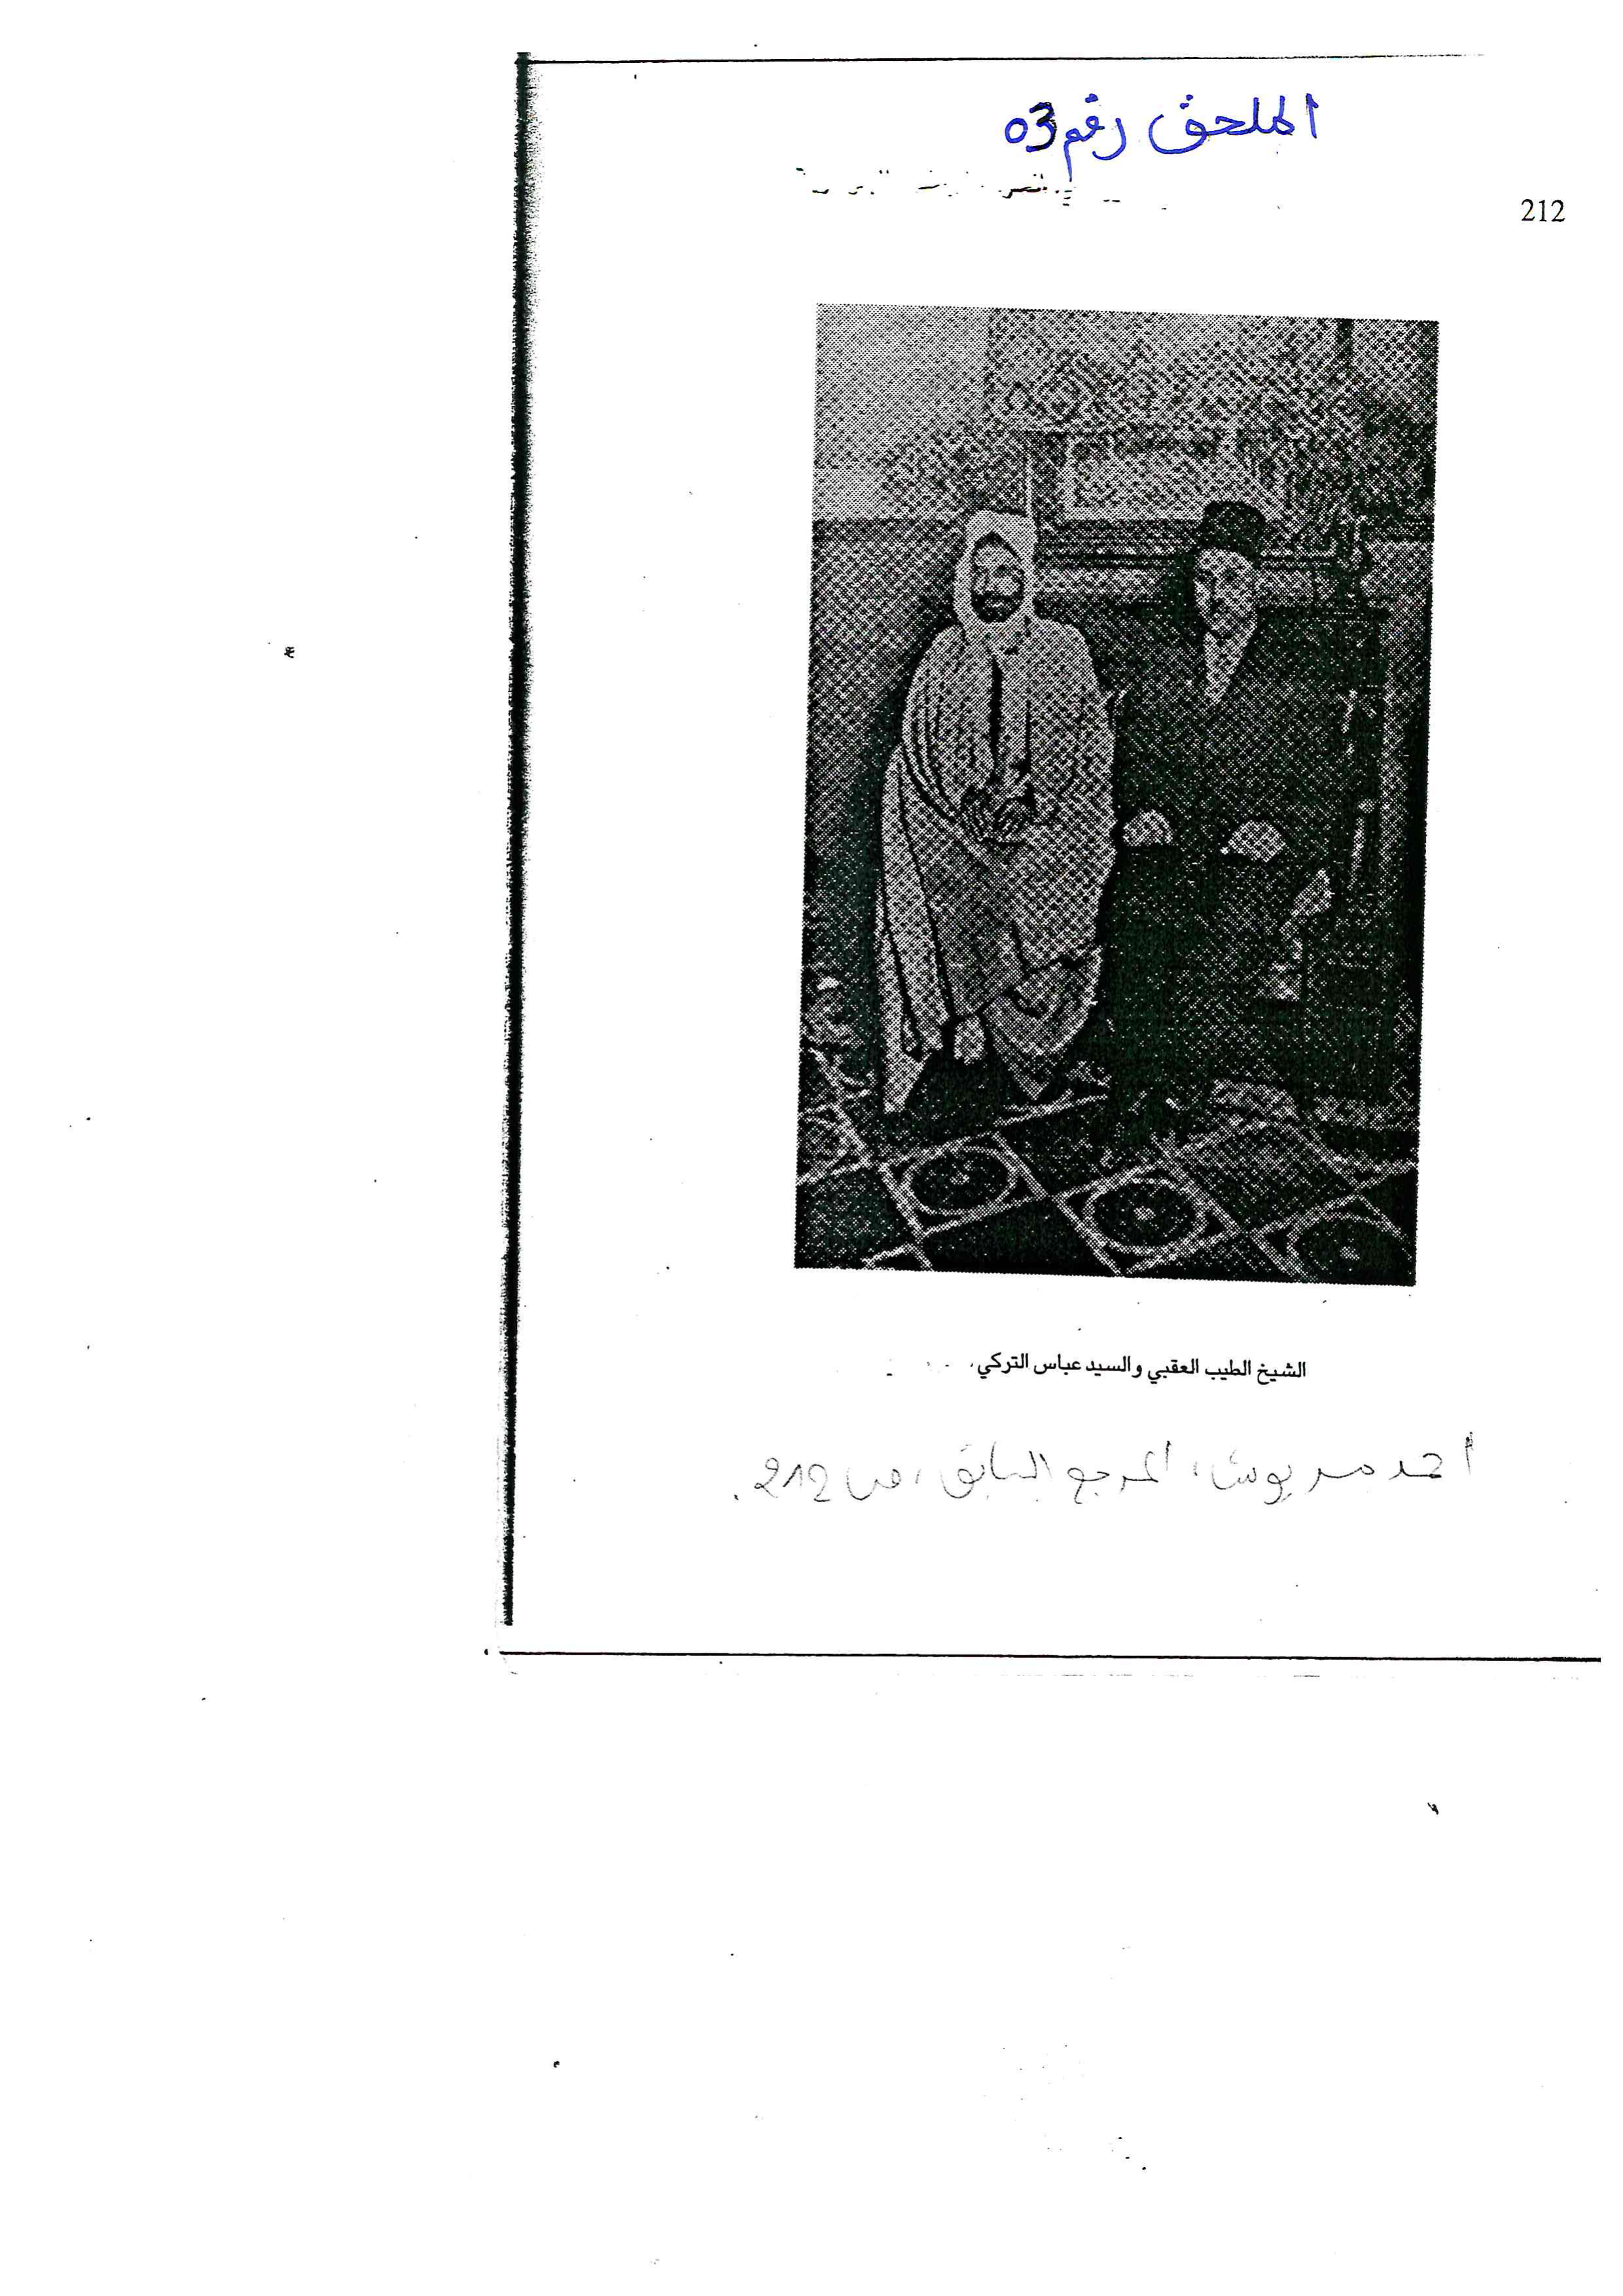 الملحق رقم 03
212
الشيخ الطيب العقبي والسيد عباس التركي.
أحمد مريوش، المرجع السابق، ص 212.